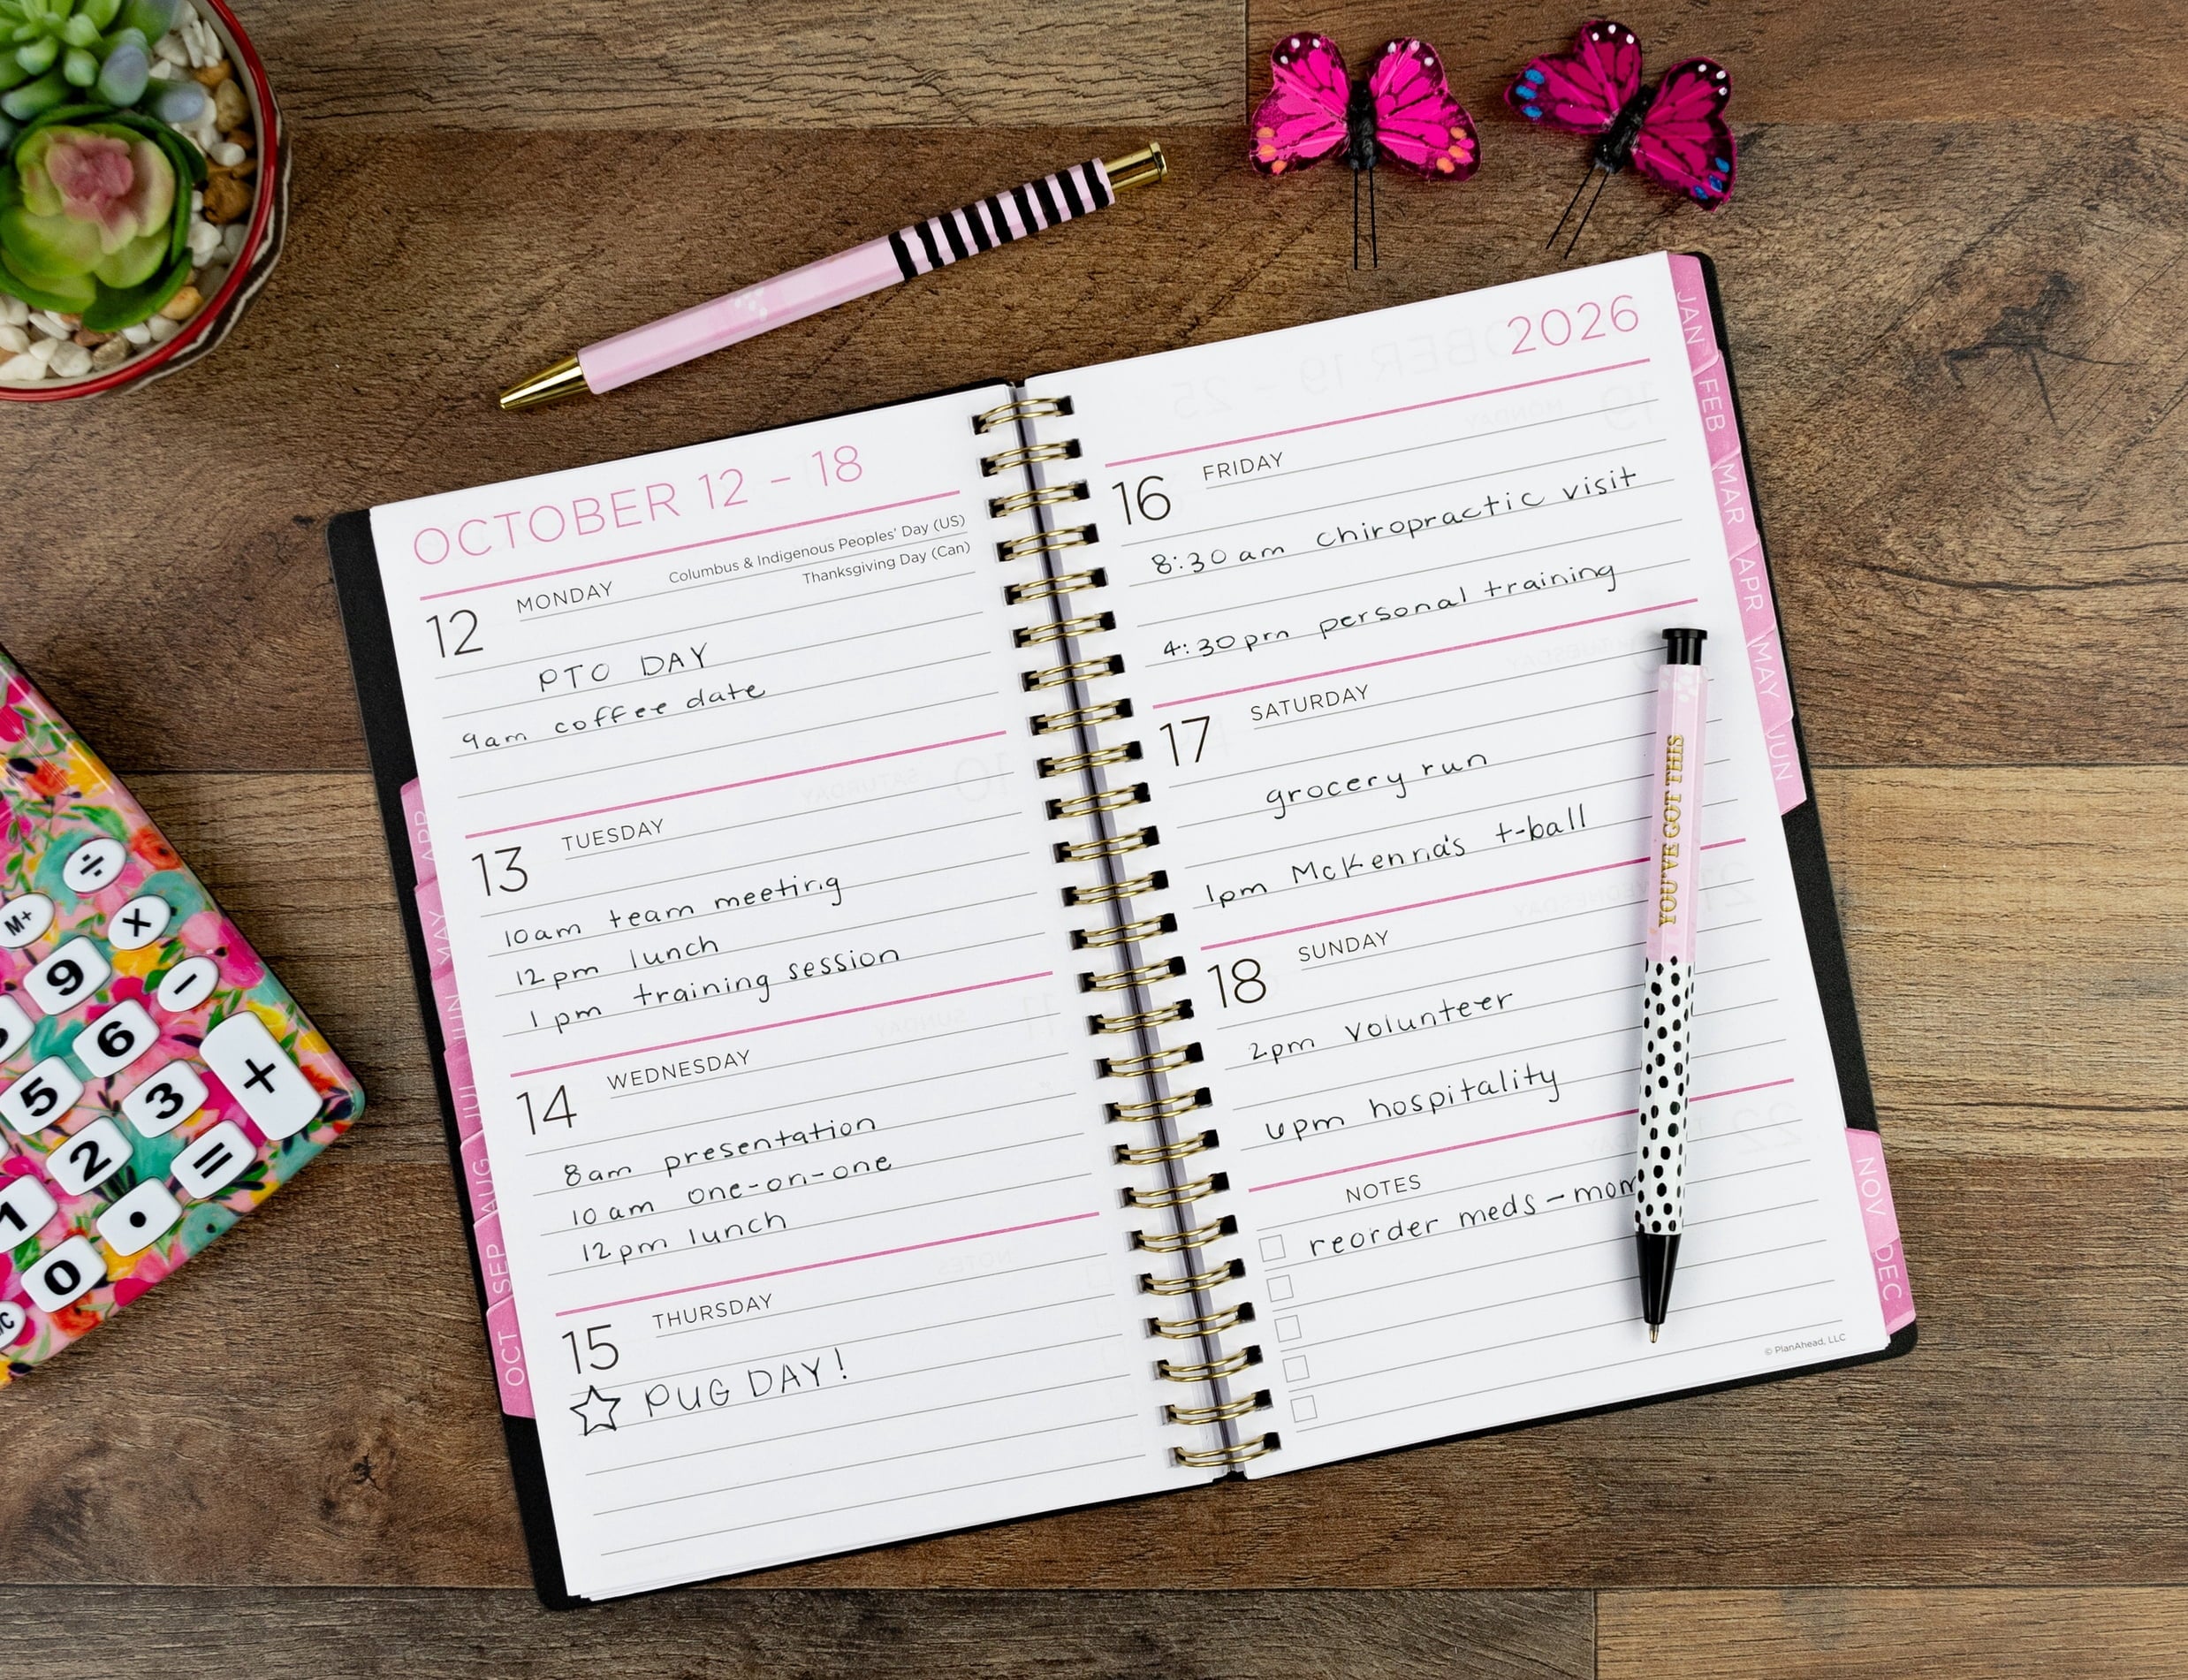 OCTOBER 12 – 18
Columbus & Indigenous Peoples' Day (US)
Thanksgiving Day (Can)
12 MONDAY
PTO DAY
9am coffee date
13 TUESDAY
10am team meeting
12pm lunch
1pm training session
14 WEDNESDAY
8am presentation
10am one-on-one
12pm lunch
15 THURSDAY
PUG DAY!
2026
16 FRIDAY
8:30am chiropractic visit
4:30pm personal training
17 SATURDAY
grocery run
1pm McKenna's t-ball
18 SUNDAY
2pm volunteer
6pm hospitality
NOTES
reorder meds – mom
© PlanAhead, LLC
JAN
FEB
MAR
APR
MAY
JUN
NOV
DEC
APR
MAY
JUN
JUL
AUG
SEP
OCT
YOU'VE GOT THIS
÷
M+
X
9
−
6
+
5
3
2
=
1
.
0